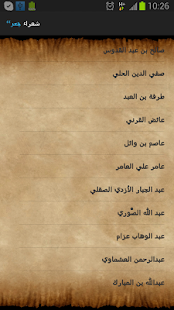 10:26
شعراء
صالح بن عبد القدوس
صفي الدين الحلي
طرفة بن العبد
عائض القرني
عاصم بن وائل
عامر علي العامر
عبد الجبار الأزدي الصقلي
عبد الله الصوري
عبد الوهاب عزام
عبدالرحمن العشماوي
عبدالله بن المبارك